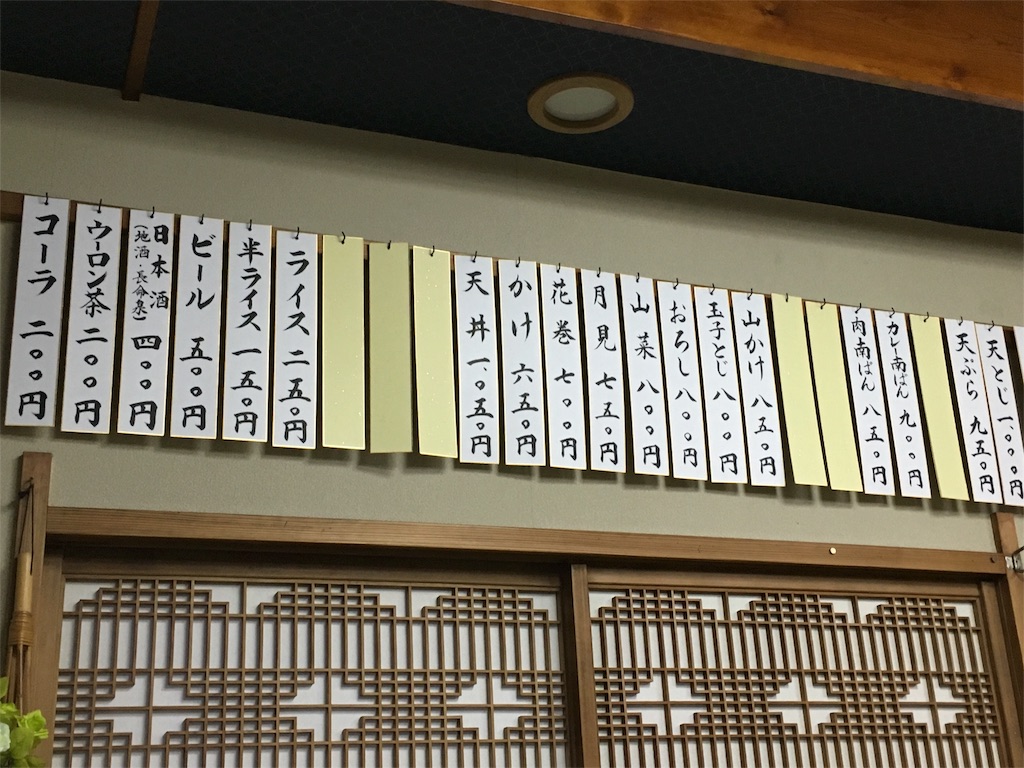 天とじ 一、〇〇〇円
天ぷら 九五〇円
カレー南ばん 九〇〇円
肉南ばん 八五〇円
山かけ 八五〇円
玉子とじ 八〇〇円
おろし 八〇〇円
山菜 八〇〇円
月見 七五〇円
花巻 七〇〇円
かけ 六五〇円
天丼 一、〇五〇円
ライス 二五〇円
半ライス 一五〇円
ビール 五〇〇円
日本酒 四〇〇円
(地酒・長命泉)
ウーロン茶 二〇〇円
コーラ 二〇〇円